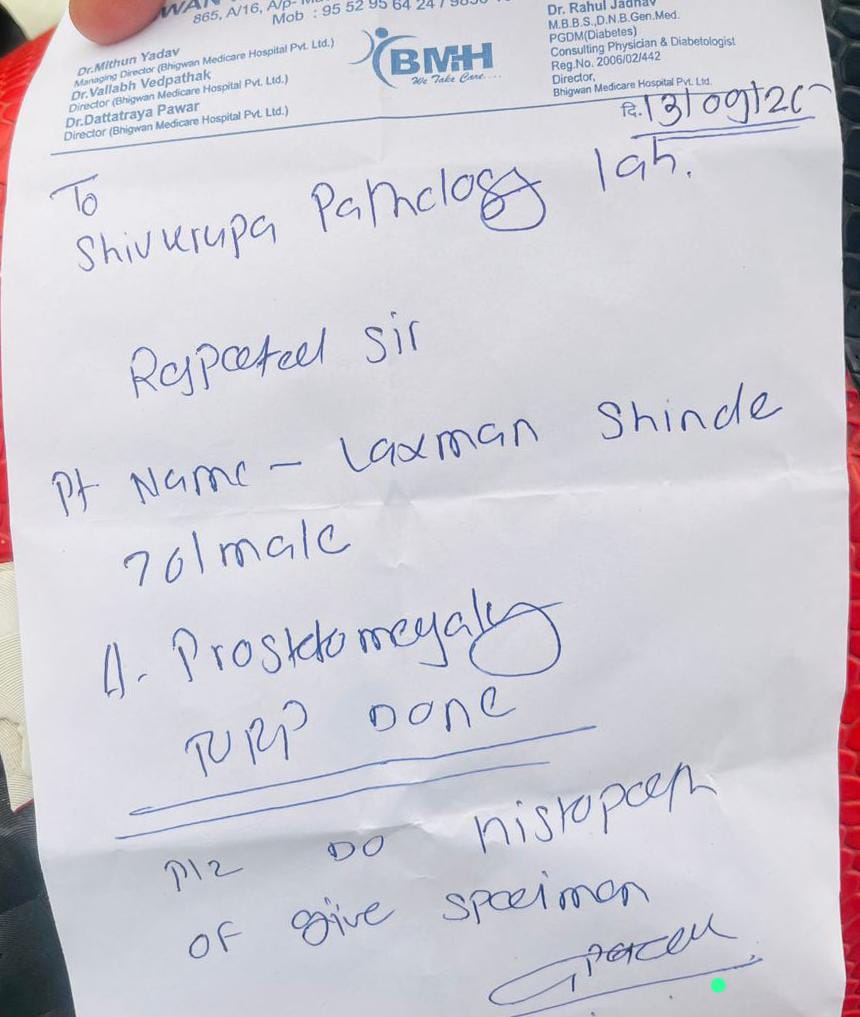 865, A/16, A/p-
Mob : 95 52 95 64 24 /
Dr.Mithun Yadav
Managing Director (Bhigwan Medicare Hospital Pvt. Ltd.)
Dr.Vallabh Vedpathak
Director (Bhigwan Medicare Hospital Pvt. Ltd.)
Dr.Dattatraya Pawar
Director (Bhigwan Medicare Hospital Pvt. Ltd.)
BMH
We Take Care....
Dr. Rahul Jadhav
M.B.B.S.,D.N.B.Gen.Med.
PGDM(Diabetes)
Consulting Physician & Diabetologist
Reg.No. 2006/02/442
Director,
Bhigwan Medicare Hospital Pvt. Ltd.
दि. 13/09/20
To
Shivkrupa Pathology lab.
Sir
Pt Name - Laxman Shinde
70/male
Prostetomegaly
TURP DONE
Plz DO histopath
OF give specimen